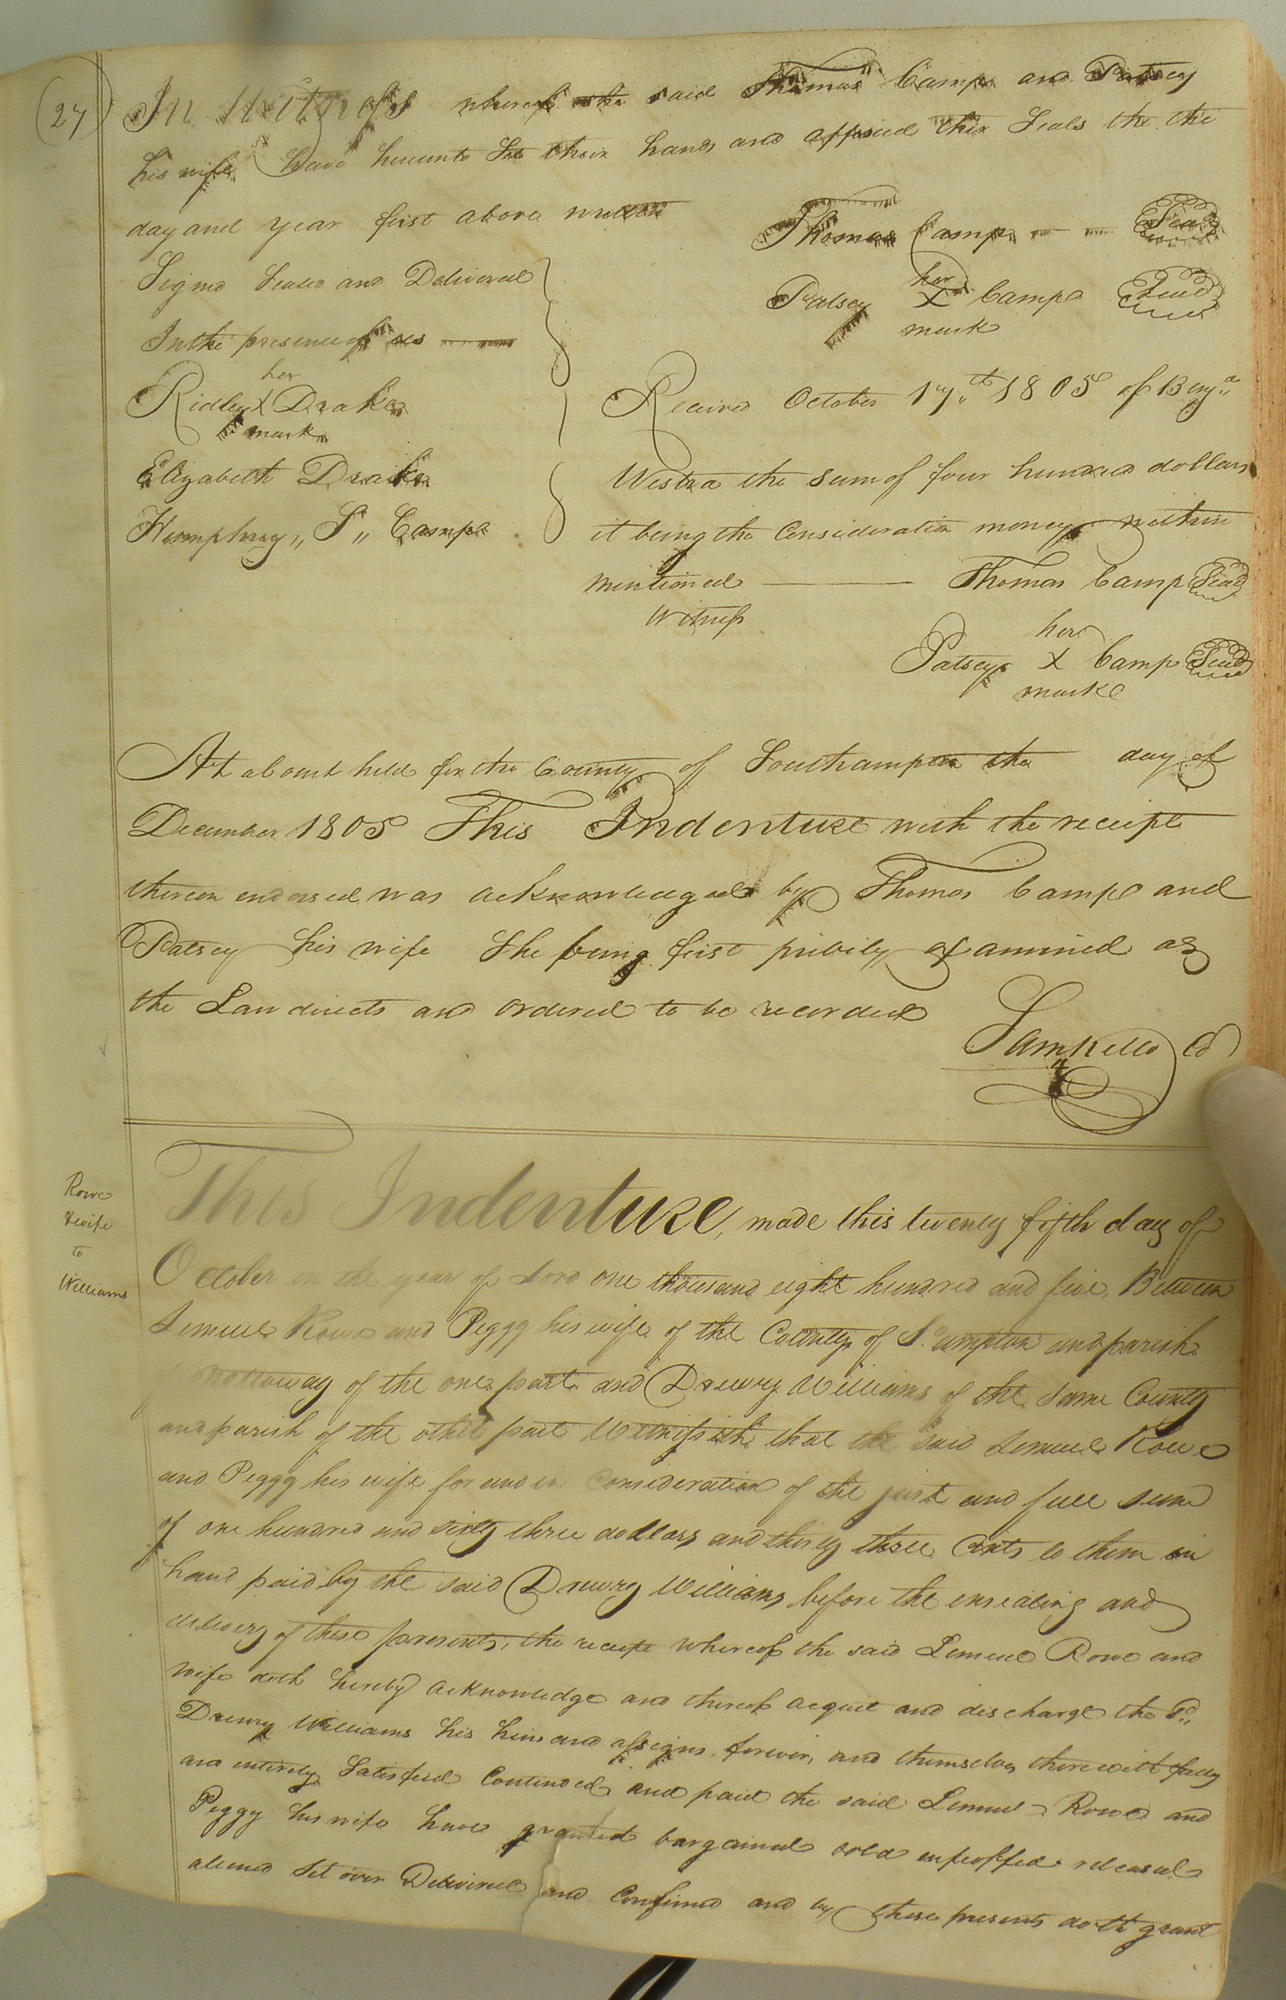 (27)
In Witness whereof the said Thomas Camp and Patsey
his wife have hereunto Set their hands and affixed their Seals the the
day and year first above written
Thomas Camp Seal
Signed Sealed and Delivered
Patsey her X mark Campe Seal
In the presence of us
Ridley her X mark Drake
Received October 17th 1805 of Benja
Elizabeth Drake
Westra the sum of four hundred dollars
Humphrey ,, S ,, Campe
it being the Consideration money within
mentioned Thomas Camp Seal
Witness
Patsey her X marke Camp Seal
At a Court held for the County of Southampton the day of
December 1805 This Indenture with the receipt
thereon endorsed was acknowledged by Thomas Campe and
Patsey his wife She being first privily examined as
the Law directs and ordered to be recorded
Saml Kello Co
Rowe
& wife
to
Williams
This Indenture, made this twenty fifth day of
October in the year of Lord one thousand eight hundred and five, Between
Lemuel Rowe and Peggy his wife of the County of S.ampton and parish
Nottoway of the one part and Drewry Williams of the same County
and parish of the other part Witnesseth that the said Lemuel Rowe
and Peggy his wife for and in Consideration of the just and full sum
of one hundred and sixty three dollars and thirty three Cents to them in
hand paid by the said Drewry Williams before the ensealing and
delivery of these presents, the receipt whereof the said Lemuel Rowe and
wife doth hereby acknowledge and thereof acquit and discharge the Sd,,
Drewry Williams his heirs and assigns forever, and themselves therewith fully
and entirely Satisfied Contended and paid the said Lemuel Rowe and
Peggy his wife have granted bargained sold enfeoffed released
aliened Set over Delivered and Confirmed and by these presents doth grant